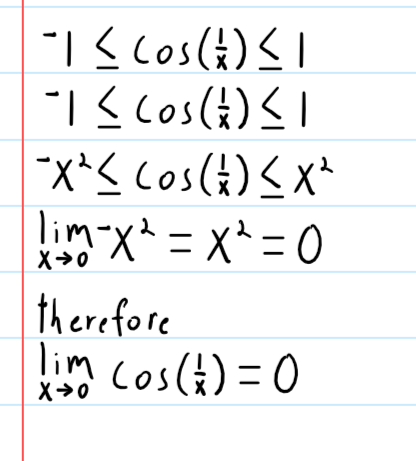 -1 ≤ cos(1/x) ≤ 1
-1 ≤ cos(1/x) ≤ 1
-x² ≤ cos(1/x) ≤ x²
lim x→0 -x² = x² = 0
therefore
lim x→0 cos(1/x) = 0